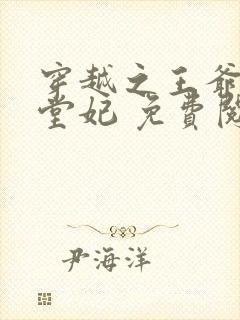 穿越之王爺
堂妃 免費閱
尹海洋